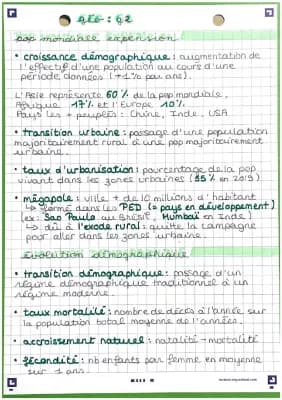 géo : G2
pop mondiale expension :
• croissance démographique : augmentation de
l'effectif d'une population au cours d'une
période données (+1% par ans).
L'Asie représente 60% de la pop mondiale,
Afrique 17% et l'Europe 10%.
Pays les + peuplés : Chine, Inde, USA
• transition urbaine : passage d'une population
majoritairement rural à une pop majoritairement
urbaine.
• taux d'urbanisation : pourcentage de la pop
vivant dans les zones urbaines (55% en 2019)
• mégapole : ville + de 10 millions d'habitant
↳ formé dans les PED (= pays en développement)
(ex : Sao Paulo au Brésil, Mumbai en Inde)
↳ dû à l'exode rural : quitte la campagne
pour aller dans les zones urbaine.
évolution démographique
• transition démographique : passage d'un
régime démographique traditionnel à un
régime moderne.
• taux mortalité : nombre de décès à l'année sur
la population total moyenne de l'années.
• accroissement naturel : natalité - mortalité
• fécondité : nb enfants par femme en moyenne
sur 1 ans.